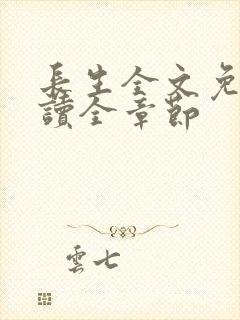 長生全文免
讀全章節
雲七